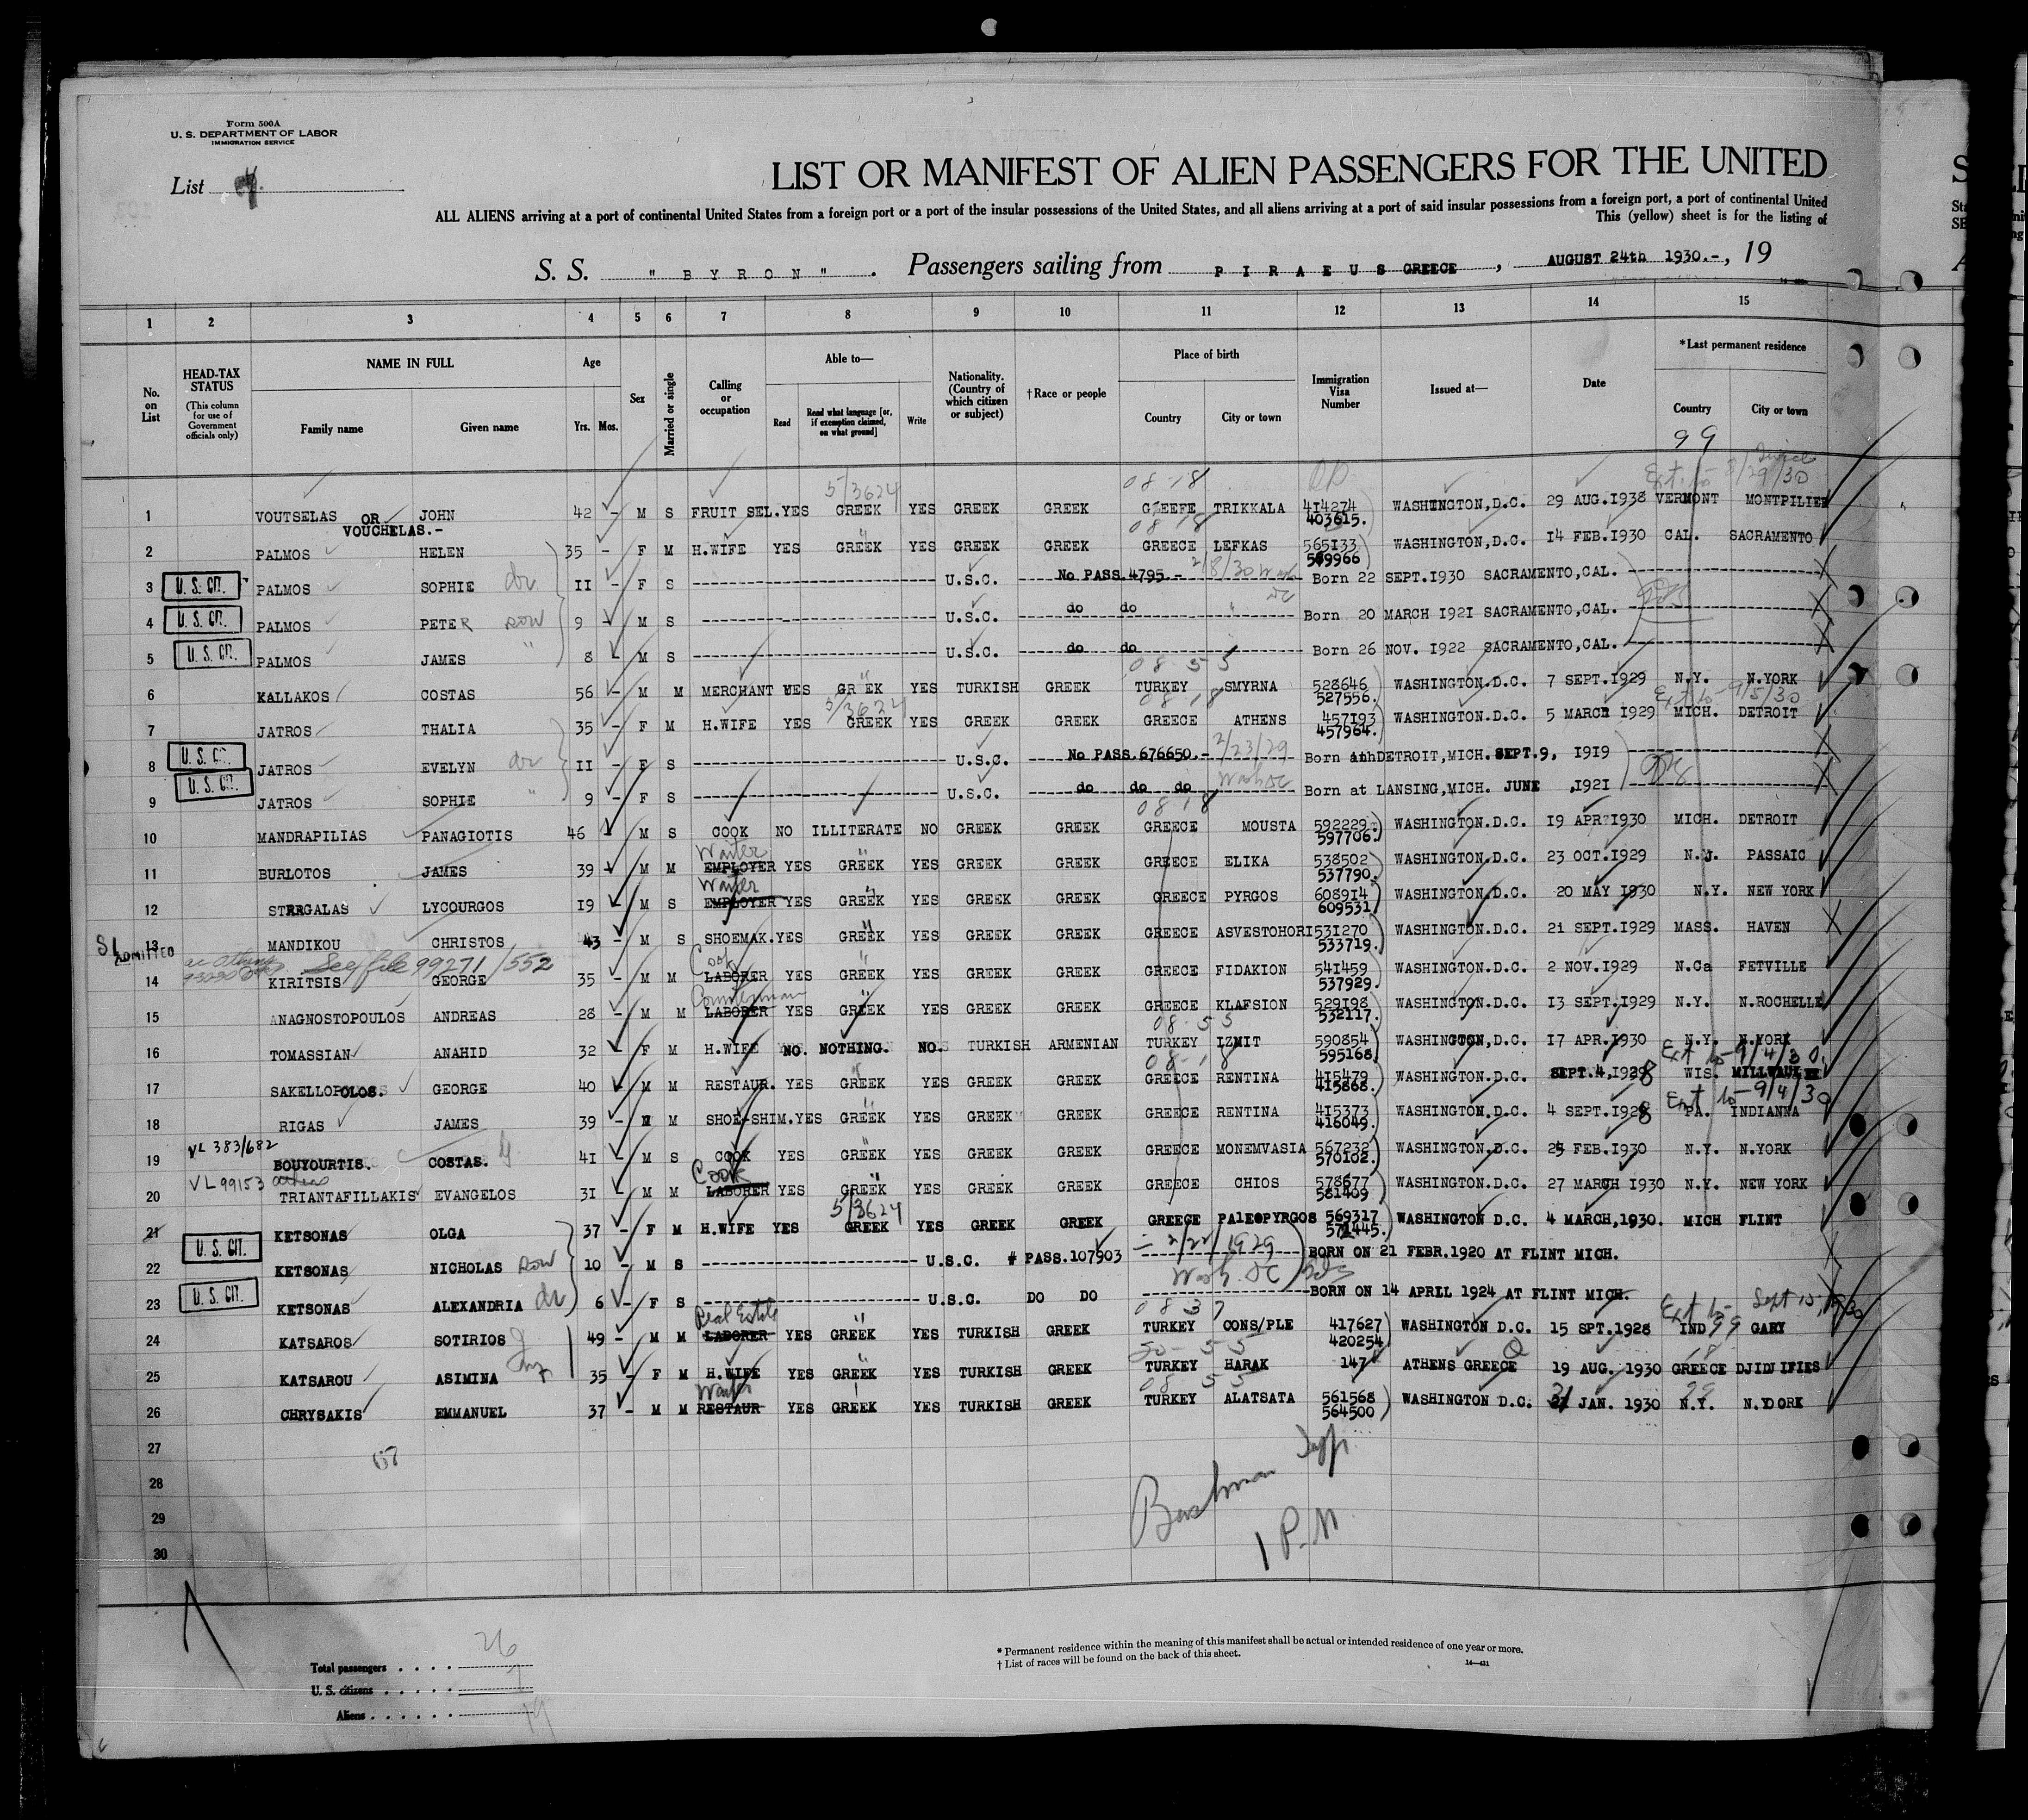 Form 500A
U. S. DEPARTMENT OF LABOR
IMMIGRATION SERVICE
List
LIST OR MANIFEST OF ALIEN PASSENGERS FOR THE UNITED
ALL ALIENS arriving at a port of continental United States from a foreign port or a port of the insular possessions of the United States, and all aliens arriving at a port of said insular possessions from a foreign port, a port of continental United
This (yellow) sheet is for the listing of
S. S. "BYRON". Passengers sailing from PIRAEUS GREECE, AUGUST 24th 1930.-, 19
1 2 3 4 5 6 7 8 9 10 11 12 13 14 15
No. on List
HEAD-TAX STATUS (This column for use of Government officials only)
NAME IN FULL
Family name Given name
Age
Yrs. Mos.
Sex
Married or single
Calling or occupation
Able to—
Read Read what language [or, if exemption claimed, on what ground] Write
Nationality. (Country of which citizen or subject)
†Race or people
Place of birth
Country City or town
Immigration Visa Number
Issued at—
Date
*Last permanent residence
Country City or town
99
Ext. to 8/29/30
5/3624 08-18
1 VOUTSELAS OR VOUCHELAS.- JOHN 42 - M S FRUIT SEL. YES GREEK YES GREEK GREEK GREEFE TRIKKALA 414274 403615. WASHINGTON,D.C. 29 AUG.1938 VERMONT MONTPILIER
08-18
2 PALMOS HELEN 35 - F M H.WIFE YES GREEK YES GREEK GREEK GREECE LEFKAS 565133 WASHINGTON,D.C. 14 FEB.1930 CAL. SACRAMENTO
3 U. S. CIT. PALMOS SOPHIE dr 11 - F S U.S.C. No PASS.4795.- 2/8/30 Wash DC Born 22 SEPT.1930 SACRAMENTO,CAL.
4 U. S. CIT. PALMOS PETER son 9 - M S U.S.C. do do " Born 20 MARCH 1921 SACRAMENTO,CAL.
5 U. S. CIT. PALMOS JAMES " 8 - M S U.S.C. do do Born 26 NOV. 1922 SACRAMENTO,CAL.
08-55
6 KALLAKOS COSTAS 56 - M M MERCHANT YES GREEK YES TURKISH GREEK TURKEY SMYRNA 528646 527556. WASHINGTON.D.C. 7 SEPT.1929 N.Y. N.YORK
5/3624 08-18 Ext to - 9/5/30
7 JATROS THALIA 35 - F M H.WIFE YES GREEK YES GREEK GREEK GREECE ATHENS 457193 457964. WASHINGTON.D.C. 5 MARCH 1929 MICH. DETROIT
8 U. S. CIT. JATROS EVELYN dr 11 - F S U.S.C. No PASS.676650.- 2/23/29 Wash DC Born DETROIT,MICH. SEPT.9, 1919
9 U. S. CIT. JATROS SOPHIE " 9 - F S U.S.C. do do do Born at LANSING,MICH. JUNE ,1921
08-18
10 MANDRAPILIAS PANAGIOTIS 46 - M S COOK NO ILLITERATE NO GREEK GREEK GREECE MOUSTA 592229 597706. WASHINGTON.D.C. 19 APR.1930 MICH. DETROIT
Waiter
11 BURLOTOS JAMES 39 - M M EMPLOYER YES GREEK YES GREEK GREEK GREECE ELIKA 538502 537790. WASHINGTON.D.C. 23 OCT.1929 N.J. PASSAIC
Waiter
12 STRRGALAS LYCOURGOS 19 - M S EMPLOYER YES GREEK YES GREEK GREEK GREECE PYRGOS 608914 609531 WASHINGTON,D.C. 20 MAY 1930 N.Y. NEW YORK
13 ADMITTED MANDIKOU CHRISTOS 43 - M S SHOEMAK. YES GREEK YES GREEK GREEK GREECE ASVESTOHORI 531270 533719. WASHINGTON.D.C. 21 SEPT.1929 MASS. HAVEN
See file 99271/552 Cook
14 KIRITSIS GEORGE 35 - M M LABORER YES GREEK YES GREEK GREEK GREECE FIDAKION 541459 537929. WASHINGTON.D.C. 2 NOV.1929 N.Ca FETVILLE
Counterman
15 ANAGNOSTOPOULOS ANDREAS 28 - M M LABORER YES GREEK YES GREEK GREEK GREECE KLAFSION 529198 532117. WASHINGTON.D.C. 13 SEPT.1929 N.Y. N.ROCHELLE
08-55
16 TOMASSIAN ANAHID 32 - F M H.WIFE NO. NOTHING. NO. TURKISH ARMENIAN TURKEY IZMIT 590854 595168. WASHINGTON,D.C. 17 APR.1930 N.Y. N.YORK
08-18 Ext to - 9/4/30.
17 SAKELLOPOLOS. GEORGE 40 - M M RESTAUR. YES GREEK YES GREEK GREEK GREECE RENTINA 415479 415868. WASHINGTON.D.C. SEPT.4,1928 WIS. MILLWAULEE
Ext to - 9/4/30
18 RIGAS JAMES 39 - M M SHOE-SHIM. YES GREEK YES GREEK GREEK GREECE RENTINA 415373 416049. WASHINGTON.D.C. 4 SEPT.1928 PA. INDIANNA
VL 383/682
19 BOUYOURTIS. COSTAS. 41 - M S COOK YES GREEK YES GREEK GREEK GREECE MONEMVASIA 567232 570102. WASHINGTON.D.C. 25 FEB.1930 N.Y. N.YORK
VL 99153 Athens Cook
20 TRIANTAFILLAKIS EVANGELOS 31 - M M LABORER YES GREEK YES GREEK GREEK GREECE CHIOS 578677 581409 WASHINGTON.D.C. 27 MARCH 1930 N.Y. NEW YORK
5/3624
21 KETSONAS OLGA 37 - F M H.WIFE YES GREEK YES GREEK GREEK GREECE PALEOPYRGOS 569317 WASHINGTON D.C. 4 MARCH,1930. MICH FLINT
22 U. S. CIT. KETSONAS NICHOLAS son 10 - M S U.S.C. # PASS.107903 2/22/1929 Wash. DC BORN ON 21 FEBR.1920 AT FLINT MICH.
23 U. S. CIT. KETSONAS ALEXANDRIA dr 6 - F S U.S.C. DO DO BORN ON 14 APRIL 1924 AT FLINT MICH.
Real Estate 08 37 Ext to - Sept 15, 1930
24 KATSAROS SOTIRIOS 49 - M M LABORER YES GREEK YES TURKISH GREEK TURKEY CONS/PLE 417627 420254 WASHINGTON D.C. 15 SPT.1928 IND GARY
50-55
25 KATSAROU ASIMINA 35 - F M H.WIFE YES GREEK YES TURKISH GREEK TURKEY HARAK 147 ATHENS GREECE 19 AUG. 1930 GREECE DJIDJIFIES
Waiter 08 55 99
26 CHRYSAKIS EMMANUEL 37 - M M RESTAUR YES GREEK YES TURKISH GREEK TURKEY ALATSATA 561568 564500 WASHINGTON D.C. 31 JAN. 1930 N.Y. N.YORK
27
28
29
30
1 P.M
Total passengers 26
U. S. citizens 7
Aliens 19
* Permanent residence within the meaning of this manifest shall be actual or intended residence of one year or more.
† List of races will be found on the back of this sheet.